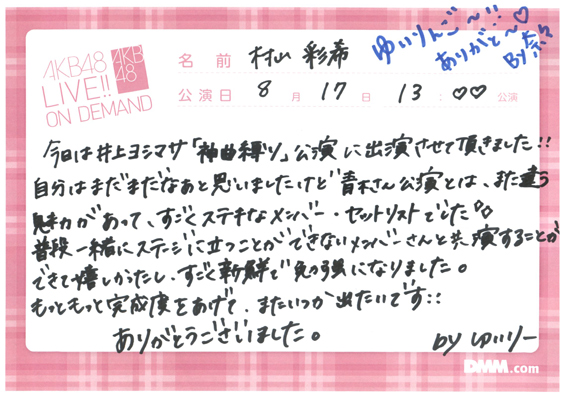 AKB48
LIVE!!
ON DEMAND
AKB
48
名前 村山 彩希
ゆいりんご〜!!♡
ありがと〜
By 奈々
公演日 8月17日 13:♡♡公演
今日は井上ヨシマサ「神曲縛り」公演に出演させて頂きました!!
自分はまだまだなぁと思いましたけど"青木さん公演とは、また違う
魅力があって、すごくステキなメンバー・セットリストでした
普段一緒にステージに立つことができないメンバーさんと共演することが
できて嬉しかったし、すごく新鮮で勉強になりました。
もっともっと完成度をあげて、またいつか出たいです::
ありがとうございました。
by ゆいりー
DMM.com